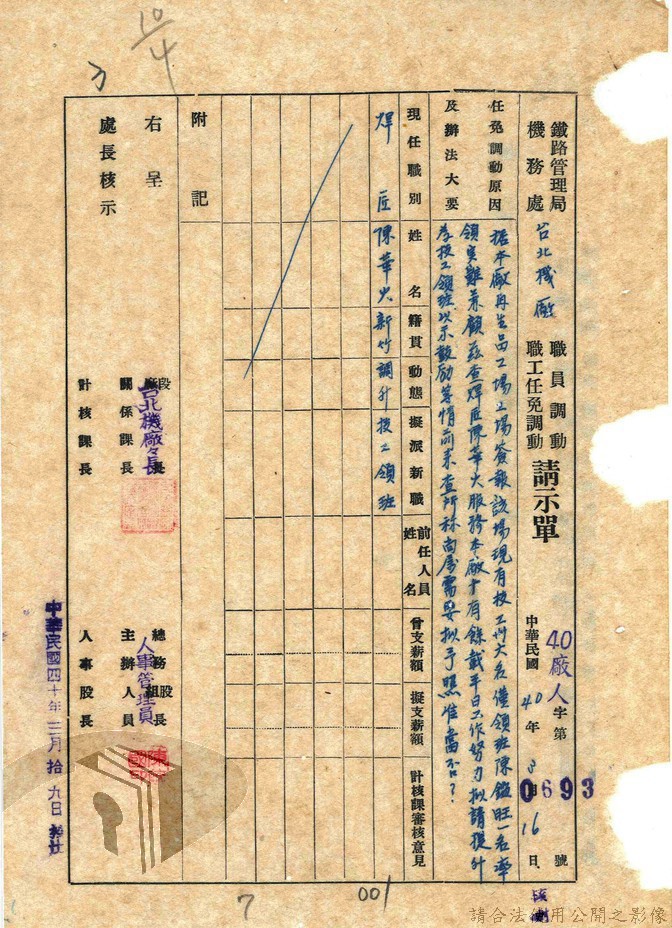 10/4
鐵路管理局
機務處
台北機廠
職員調動
職工任免調動
請示單
40廠人字第0693號
中華民國40年3月16日
任免調動原因
及辦法大要
據本廠再生品工場工場簽報該場現有技工卅六名僅領班陳鎰旺一名率
領實難兼顧茲查焊匠陳華火服務本廠十有餘載平日工作努力拟請提升
為技工領班以示鼓勵等情前來查所称尚屬需要拟予照准當否？
現任職別
姓名
籍貫
動態
擬派新職
前任人員姓名
曾支薪額
擬支薪額
計核課審核意見
焊匠
陳華火
新竹
調升
技工領班
附記
右呈
處長核示
段廠長
台北機廠々長
關係課長
計核課長
總務股組長
人事管理員
主辦人員
人事股長
中華民國四十年三月拾九日
7
001
請合法使用公開之影像